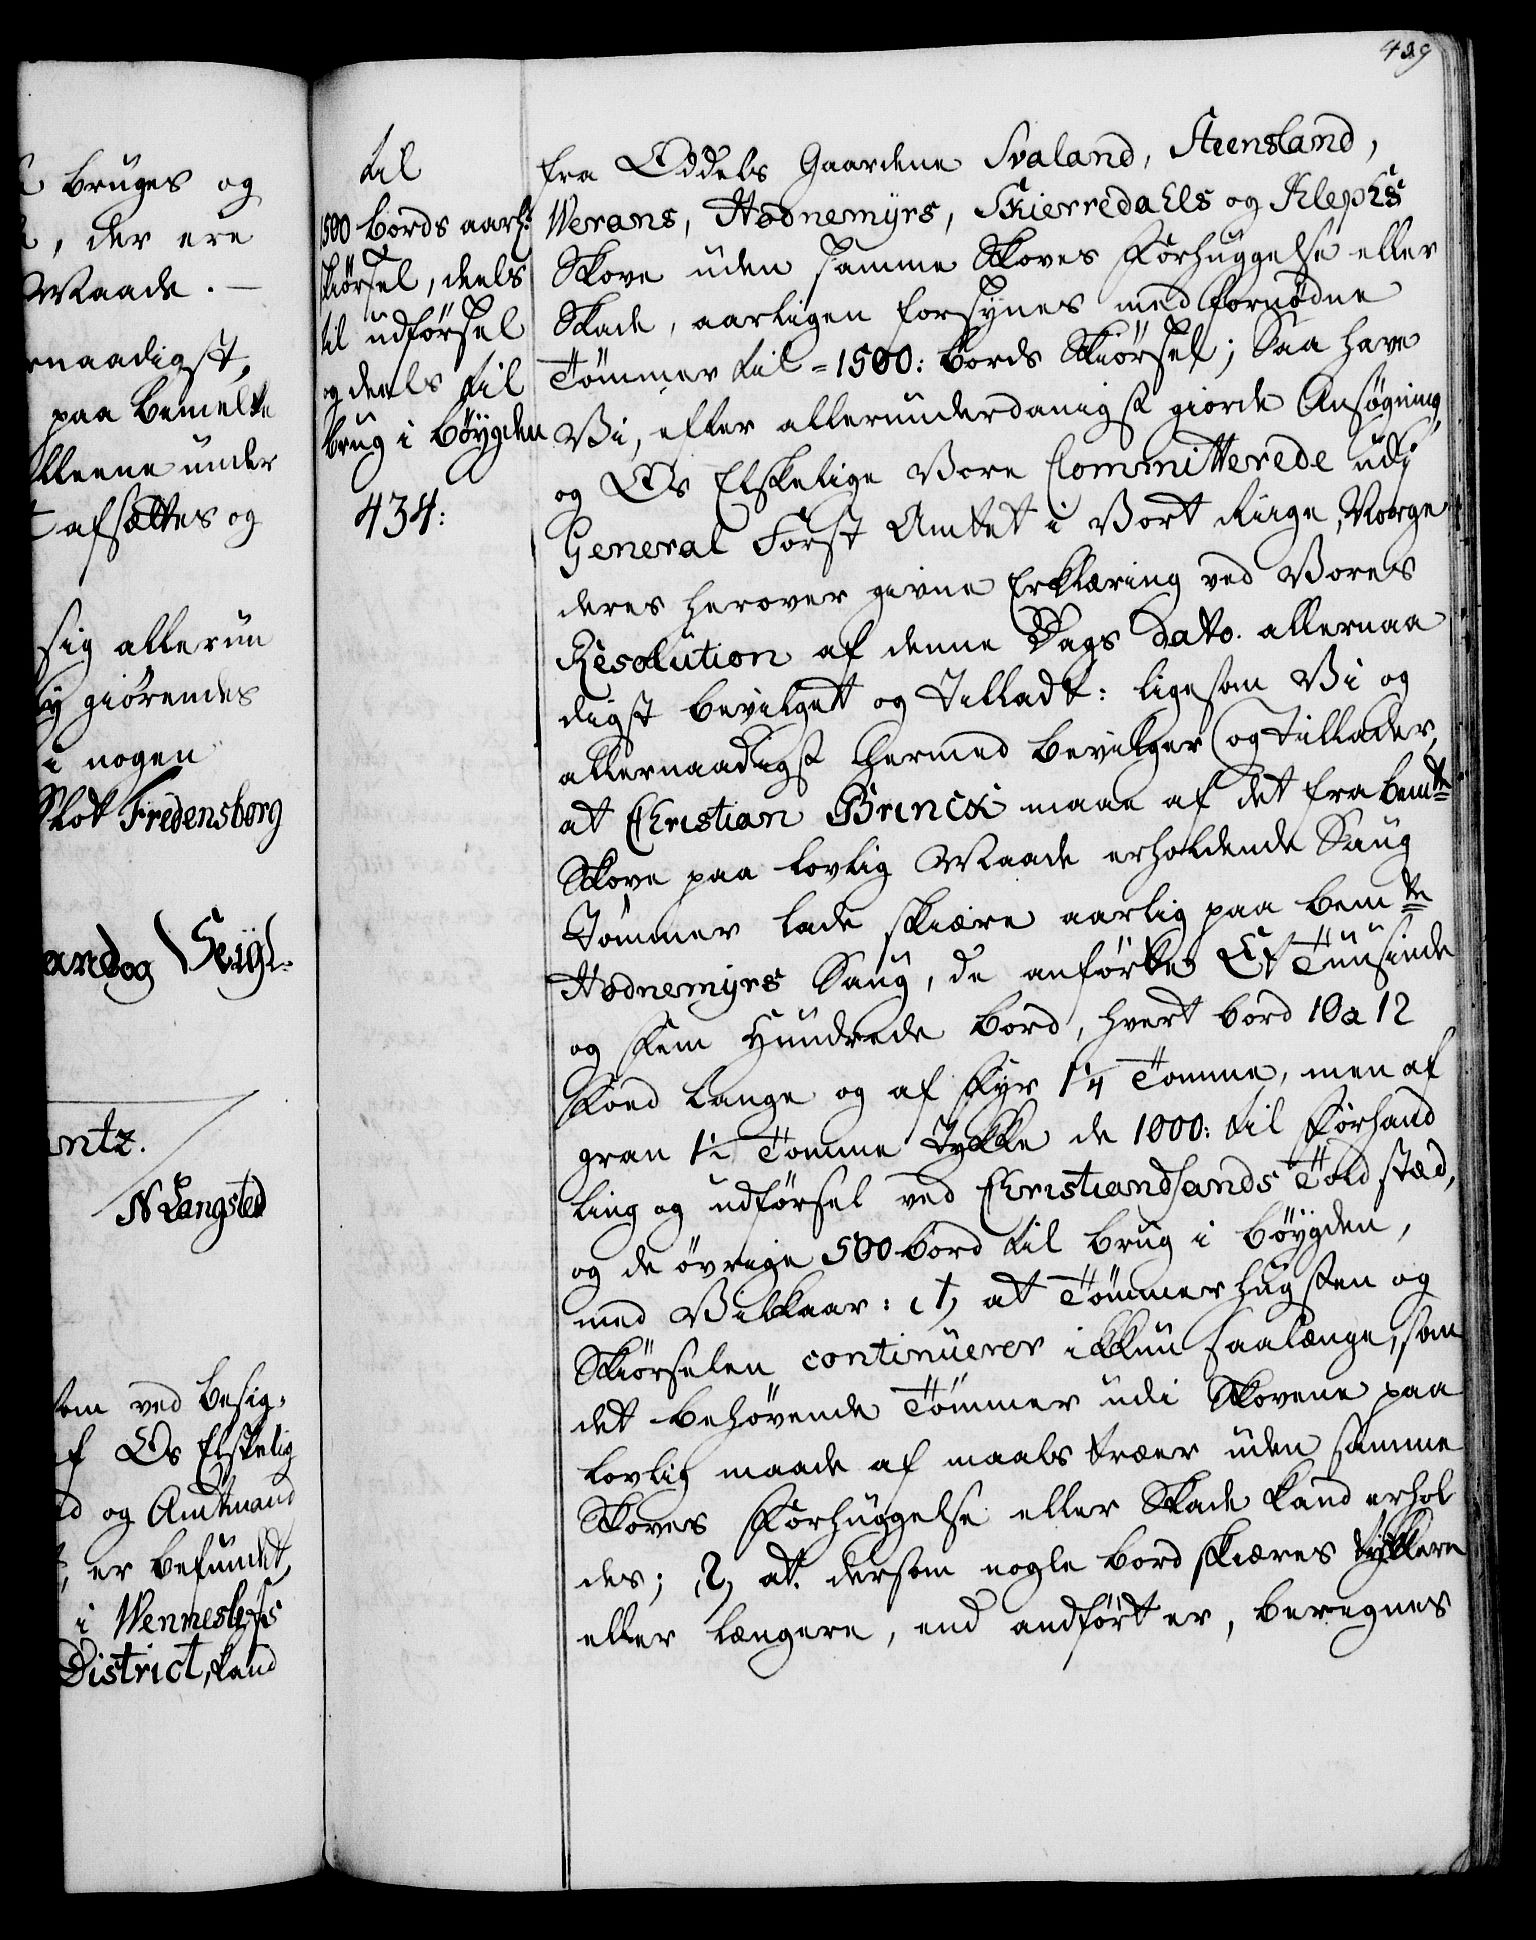 bruges og
, der ere
Maade. —
rnaadigst,
paa bemelte
lleene under
t afsættes og
sig allerun
y giörendes
i nogen
Slot Fredensborg
andog Seigl.
ntz.
N Langsted
som ved besig,
f Os Elskelig
d og Amtmand
, er befundet,
i Wennesløfs
District, kand
til
1500 bords aarl:
skiörsel, deels
til udförsel
og deels til
brug i böygden
434:
439
fra Oddels Gaardene Svaland, Steensland,
Werans, Hodnemyrs, Skierredahls og Klephs
Skove uden samme Skoves Forhuggelse eller
Skade, aarligen forsynes med fornödne
Tömmer til = 1500: bords Skiörsel; Saa have
Vi, efter allerunderdanigst giorde Ansøgning,
og Os Elskelige Vore Committerede udj
General Forst Amtet i Vort Riige, Norge
deres herover givne Erklæring ved Vores
Resolution af denne Dags dato. allernaa
digst bevilget og Tilladt: ligesom Vi og
allernaadigst hermed bevilger og tillader,
at Christian Brincx maae af det fra bemte
Skove paa lovlig Maade erholdende Saug
Tömmer lade skiære aarlig paa bemte
Hodnemyrs Saug, de anförte Et Tuusinde
og Fem Hundrede bord, hvert bord 10 a 12
Foed lange og af Fyr 1¼ Tomme, men af
gran 1½ Tomme tykke de 1000: til Forhand
ling og udförsel ved Christiandsands Told stæd,
og de övrige 500 bord til brug i böygden,
med Vilkaar: 1, at Tömmerhugsten og
Skiörselen continuerer ikkun saalænge, som
det behövende Tömmer udi Skovene paa
lovlig maade af maals træer uden samme
Skoves Forhuggelse eller Skade kand erhol
des; 2, at dersom nogle bord skiæres tykkere
eller længere, end andfört er, beregnes